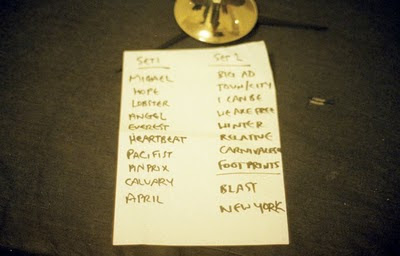 SET 1
HOPE
LOBSTER
ANGEL
EVEREST
HEARTBEAT
PACIFIST
CALVARY
APRIL
SET 2
BIG AD
TOWN/CITY
I CAN BE
WE ARE FREE
WINTER
RELATIVE
FOOTPRINTS
BLAST
NEW YORK